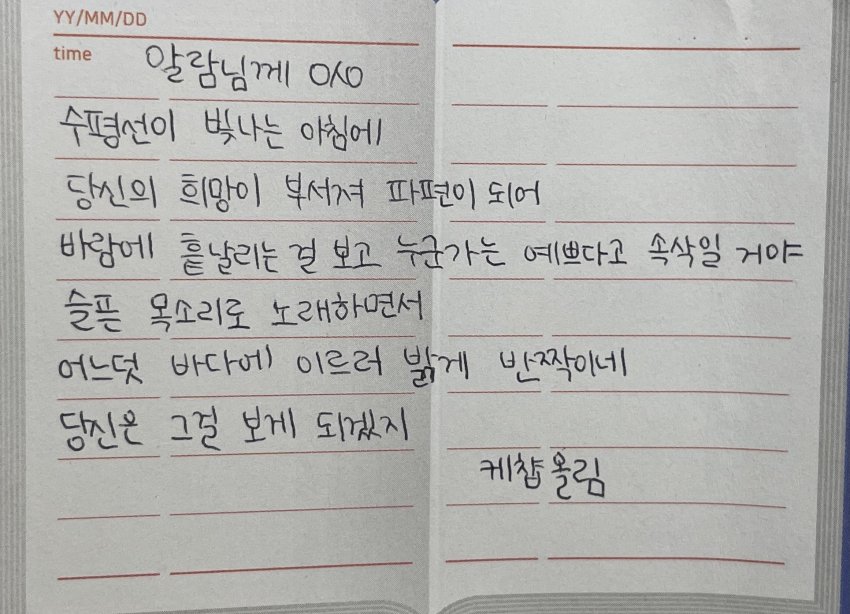 YY/MM/DD
time
알람님께 OㅅO
수평선이 빛나는 아침에
당신의 희망이 부서져 파편이 되어
바람에 흩날리는 걸 보고 누군가는 예쁘다고 속삭일 거야
슬픈 목소리로 노래하면서
어느덧 바다에 이르러 밝게 반짝이네
당신은 그걸 보게 되겠지
케찹 올림